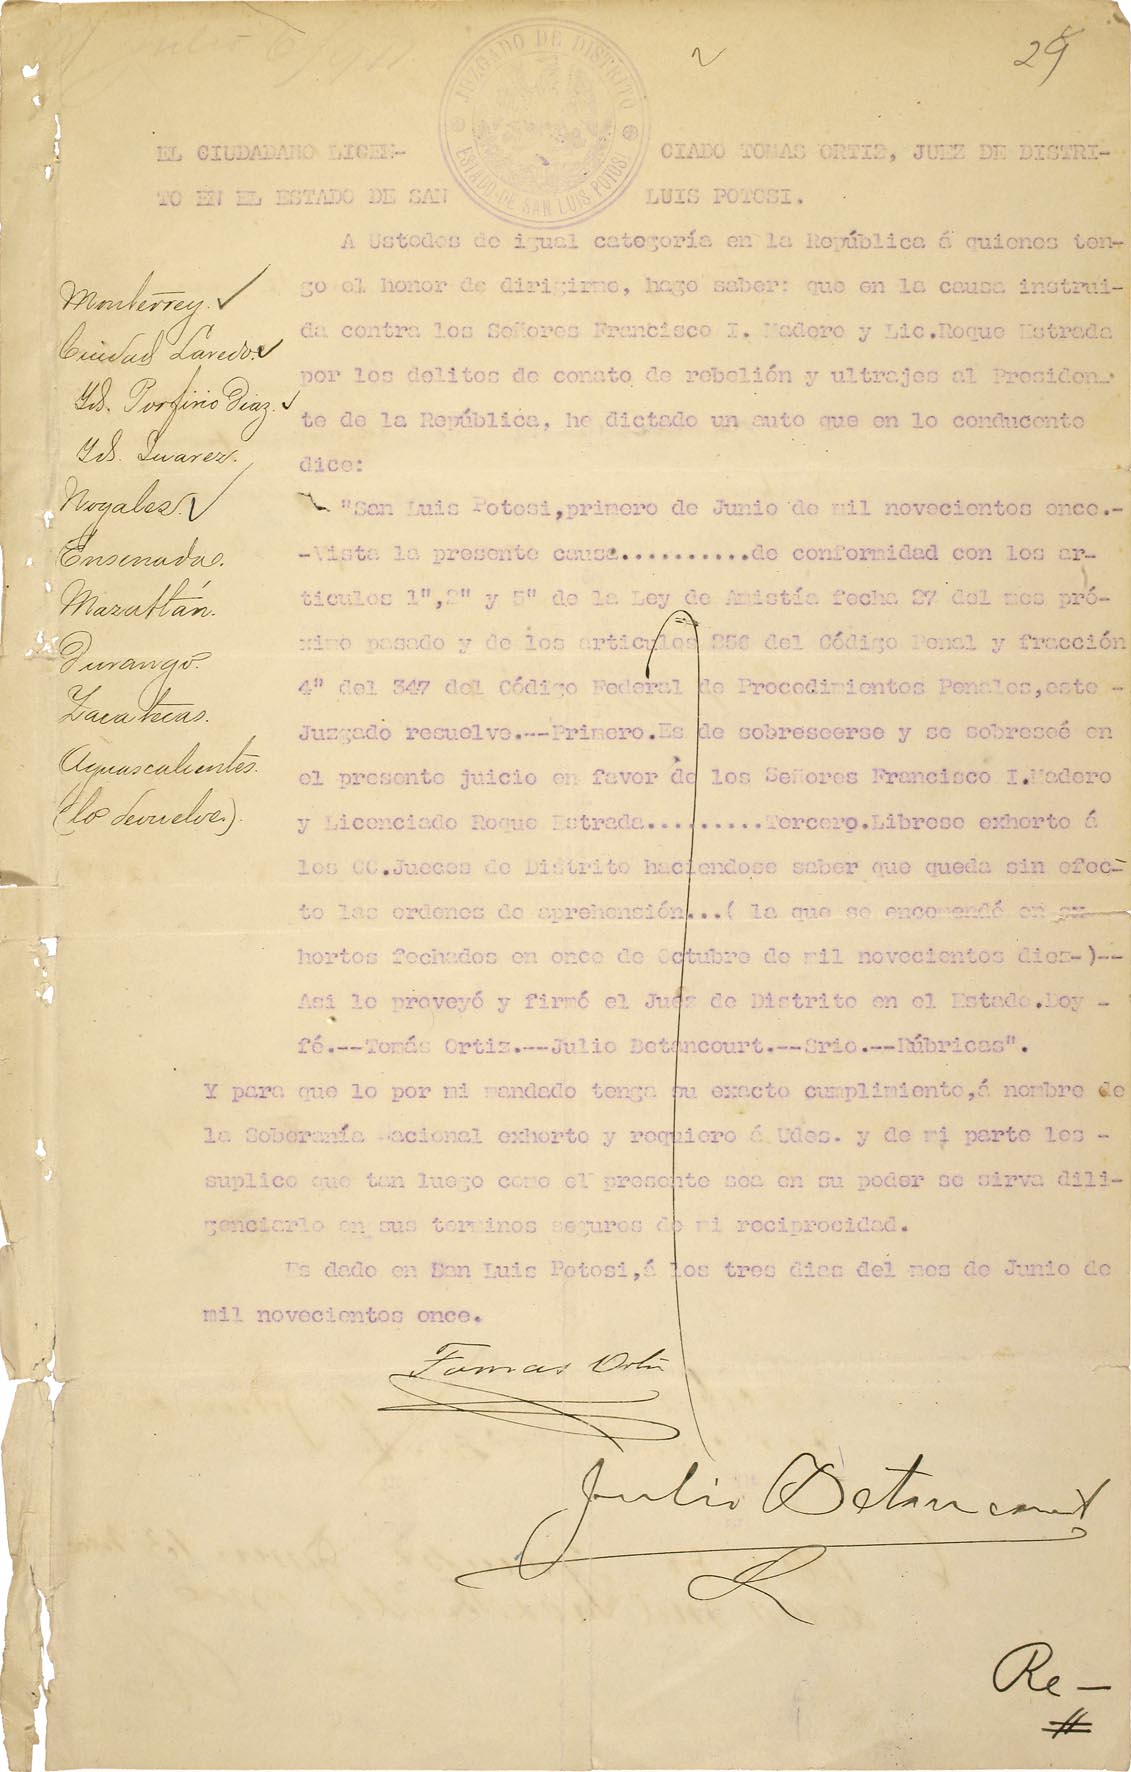 29
JUZGADO DE DISTRITO
ESTADO DE SAN LUIS POTOSI
EL CIUDADANO LICEN- CIADO TOMAS ORTIZ, JUEZ DE DISTRI-
TO EN EL ESTADO DE SAN LUIS POTOSI.
A Ustedes de igual categoría en la República á quienes ten-
go el honor de dirigirme, hago saber: que en la causa instrui-
da contra los Señores Francisco I. Madero y Lic.Roque Estrada
por los delitos de conato de rebelión y ultrajes al Presiden-
te de la República, he dictado un auto que en lo conducente
dice:
"San Luis Potosi,primero de Junio de mil novecientos once.-
-Vista la presente causa..........de conformidad con los ar-
ticulos 1",2" y 5" de la Ley de Amistía fecha 27 del mes pró-
ximo pasado y de los articulos 256 del Código Penal y fracción
4" del 347 del Código Federal de Procedimientos Penales,este -
Juzgado resuelve.--Primero.Es de sobreseerse y se sobreseé en
el presente juicio en favor de los Señores Francisco I.Madero
y Licenciado Roque Estrada.........Tercero.Librese exhorto á
los CC.Jueces de Distrito haciendose saber que queda sin efec-
to las ordenes de aprehensión...( la que se encomendó en ex-
hortos fechados en once de Octubre de mil novecientos diez-)--
Asi lo proveyó y firmó el Juez de Distrito en el Estado.Doy -
fé.--Tomás Ortiz.--Julio Betancourt.--Srio.--Rúbricas".
Y para que lo por mi mandado tenga su exacto cumplimiento,á nombre de
la Soberanía Nacional exhorto y requiero á Udes. y de mi parte les -
suplico que tan luego como el presente sea en su poder se sirva dili-
genciarlo en sus terminos seguros de mi reciprocidad.
Es dado en San Luis Potosi,á los tres dias del mes de Junio de
mil novecientos once.
Monterrey.
Ciudad Laredo.
Id. Porfirio Diaz.
Id. Juarez.
Nogales.
Ensenada.
Mazatlán.
Durango.
Zacatecas.
Aguascalientes.
(lo devuelve).
Tomas Ortiz
Julio Betancourt
Re-